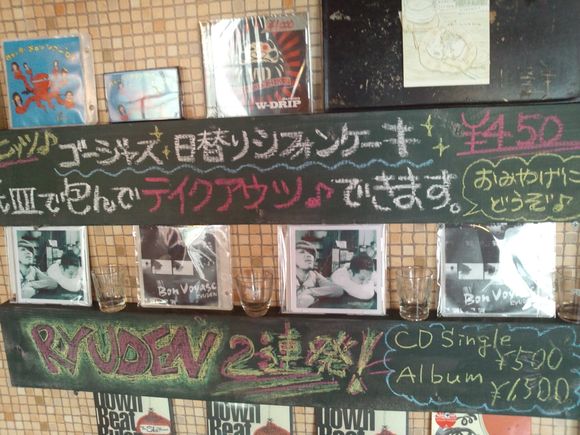 W-DRIP
ゴージャス 日替りシフォンケーキ ¥450
で包んでテイクアウツ♪できます。
おみやげに
どうぞ♪
Bon Voyage
RYUDEN
Bon Voyage
RYUDEN
RYUDEN 2連発!
CD Single
¥500
Album ¥1,500
Down
Beat
Down
Beat
Down
Beat